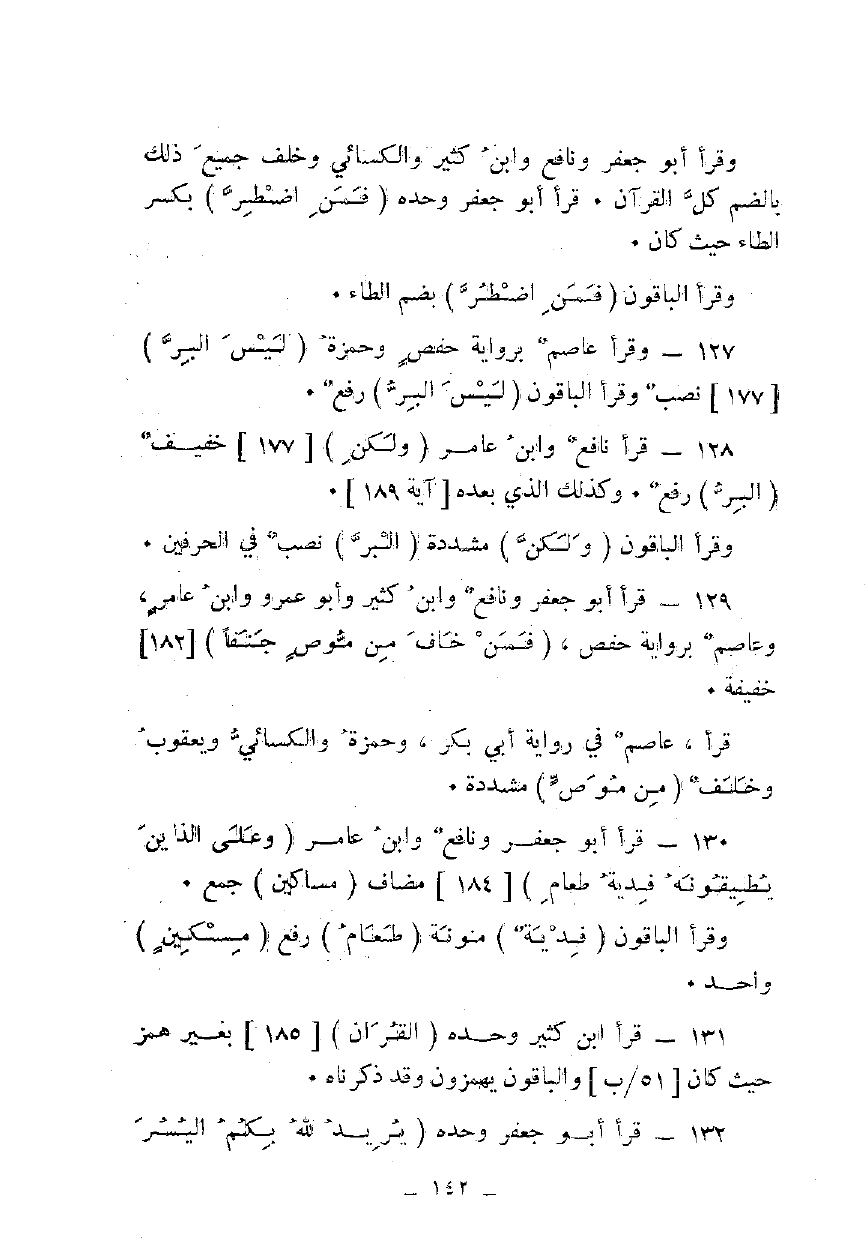 وقرأ أبو جعفر ونافع وابنُ كثير والكسائي وخلف جميعَ ذلك
بالضم كلَّ القرآن ٠ قرأ أبو جعفر وحده ( فَمَنِ اضْطِرَّ ) بكسر
الطاء حيث كان ٠
وقرأ الباقون ( فَمَنِ اضْطُرَّ ) بضم الطاء ٠
١٢٧ — وقرأ عاصمٌ برواية حفصٍ وحمزةُ ( لَيْسَ البِرَّ )
[ ١٧٧ ] نصبٌ وقرأ الباقون ( لَيْسَ البِرُّ ) رفعٌ ٠
١٢٨ — قرأ نافعٌ وابنُ عامر ( ولَكنِ ) [ ١٧٧ ] خفيفٌ
( البِرُّ ) رفعٌ ٠ وكذلك الذي بعده [ آية ١٨٩ ] ٠
وقرأ الباقون ( وَلَكنَّ ) مشددة ( الْبرَّ ) نصبٌ في الحرفين ٠
١٢٩ — قرأ أبو جعفر ونافعٌ وابنُ كثير وأبو عمرو وابنُ عامرٍ،
وعاصمٌ برواية حفص ، ( فَمَنْ خَافَ مِن مُوصٍ جَنَفاً ) [١٨٢]
خفيفة ٠
قرأ ، عاصمٌ في رواية أبي بكر ، وحمزةُ والكسائيُّ ويعقوبُ
وخَلَفٌ ( مِن مُوَصٍّ ) مشددة ٠
١٣٠ — قرأ أبو جعفر ونافعٌ وابنُ عامر ( وعَلَى الذِينَ
يُطِيقُونَهُ فِديةُ طعامِ ) [ ١٨٤ ] مضاف ( مساكين ) جمع ٠
وقرأ الباقون ( فِدْيَةٌ ) منونة ( طَعَامُ ) رفع ( مِسْكينٍ )
واحد ٠
١٣١ — قرأ ابن كثير وحده ( القُرَان ) [ ١٨٥ ] بغير همز
حيث كان [ ٥١/ب ] والباقون يهمزون وقد ذكرناه ٠
١٣٢ — قرأ أبو جعفر وحده ( يُرِيدُ اللهُ بِكُمُ اليُسُرَ
— ١٤٢ —